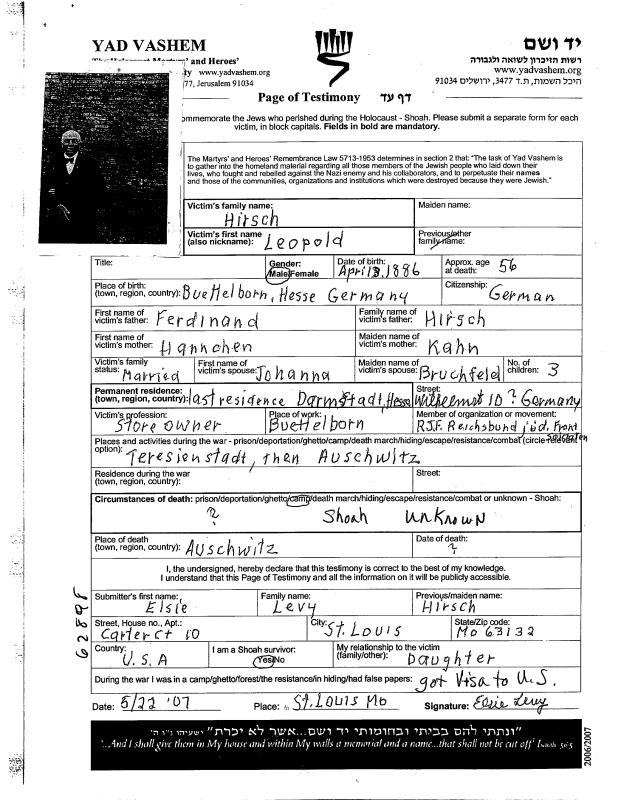 YAD VASHEM
and Heroes'
www.yadvashem.org
77, Jerusalem 91034
יד ושם
רשות הזיכרון לשואה ולגבורה
www.yadvashem.org
היכל השמות, ת.ד 3477, ירושלים 91034
Page of Testimony דף עד
commemorate the Jews who perished during the Holocaust - Shoah. Please submit a separate form for each
victim, in block capitals. Fields in bold are mandatory.
The Martyrs' and Heroes' Remembrance Law 5713-1953 determines in section 2 that: "The task of Yad Vashem is
to gather into the homeland material regarding all those members of the Jewish people who laid down their
lives, who fought and rebelled against the Nazi enemy and his collaborators, and to perpetuate their names
and those of the communities, organizations and institutions which were destroyed because they were Jewish."
Victim's family name: Hirsch Maiden name:
Victim's first name (also nickname): Leopold Previous/other family name:
Title: Gender: Male/Female Date of birth: April 3, 1886 Approx. age at death: 56
Place of birth: (town, region, country): Buettelborn, Hesse Germany Citizenship: German
First name of victim's father: Ferdinand Family name of victim's father: Hirsch
First name of victim's mother: Hannchen Maiden name of victim's mother: Kahn
Victim's family status: Married First name of victim's spouse: Johanna Maiden name of victim's spouse: Bruchfeld No. of children: 3
Permanent residence: (town, region, country): last residence Darmstadt, Hesse Street: 10 ? Germany
Victim's profession: Store owner Place of work: Buettelborn Member of organization or movement: R.J.F. Reichsbund jüd. Front Soldaten
Places and activities during the war - prison/deportation/ghetto/camp/death march/hiding/escape/resistance/combat (circle relevant
option): Teresienstadt, then Auschwitz
Residence during the war (town, region, country): Street:
Circumstances of death: prison/deportation/ghetto/camp/death march/hiding/escape/resistance/combat or unknown - Shoah:
? Shoah Unknown
Place of death (town, region, country): Auschwitz Date of death: ?
I, the undersigned, hereby declare that this testimony is correct to the best of my knowledge.
I understand that this Page of Testimony and all the information on it will be publicly accessible.
Submitter's first name: Elsie Family name: Levy Previous/maiden name: Hirsch
Street, House no., Apt.: Carter Ct 10 City: St. Louis State/Zip code: Mo 63132
Country: U.S.A I am a Shoah survivor: Yes/No My relationship to the victim (family/other): Daughter
During the war I was in a camp/ghetto/forest/the resistance/in hiding/had false papers: got Visa to U.S.
Date: 5/22 '07 Place: St. Louis Mo Signature: Elsie Levy
62898
"ונתתי להם בביתי ובחומותי יד ושם...אשר לא יכרת" ישעיהו נ"ו ה'
'...And I shall give them in My house and within My walls a memorial and a name...that shall not be cut off' Isaiah 56:5
2006/2007